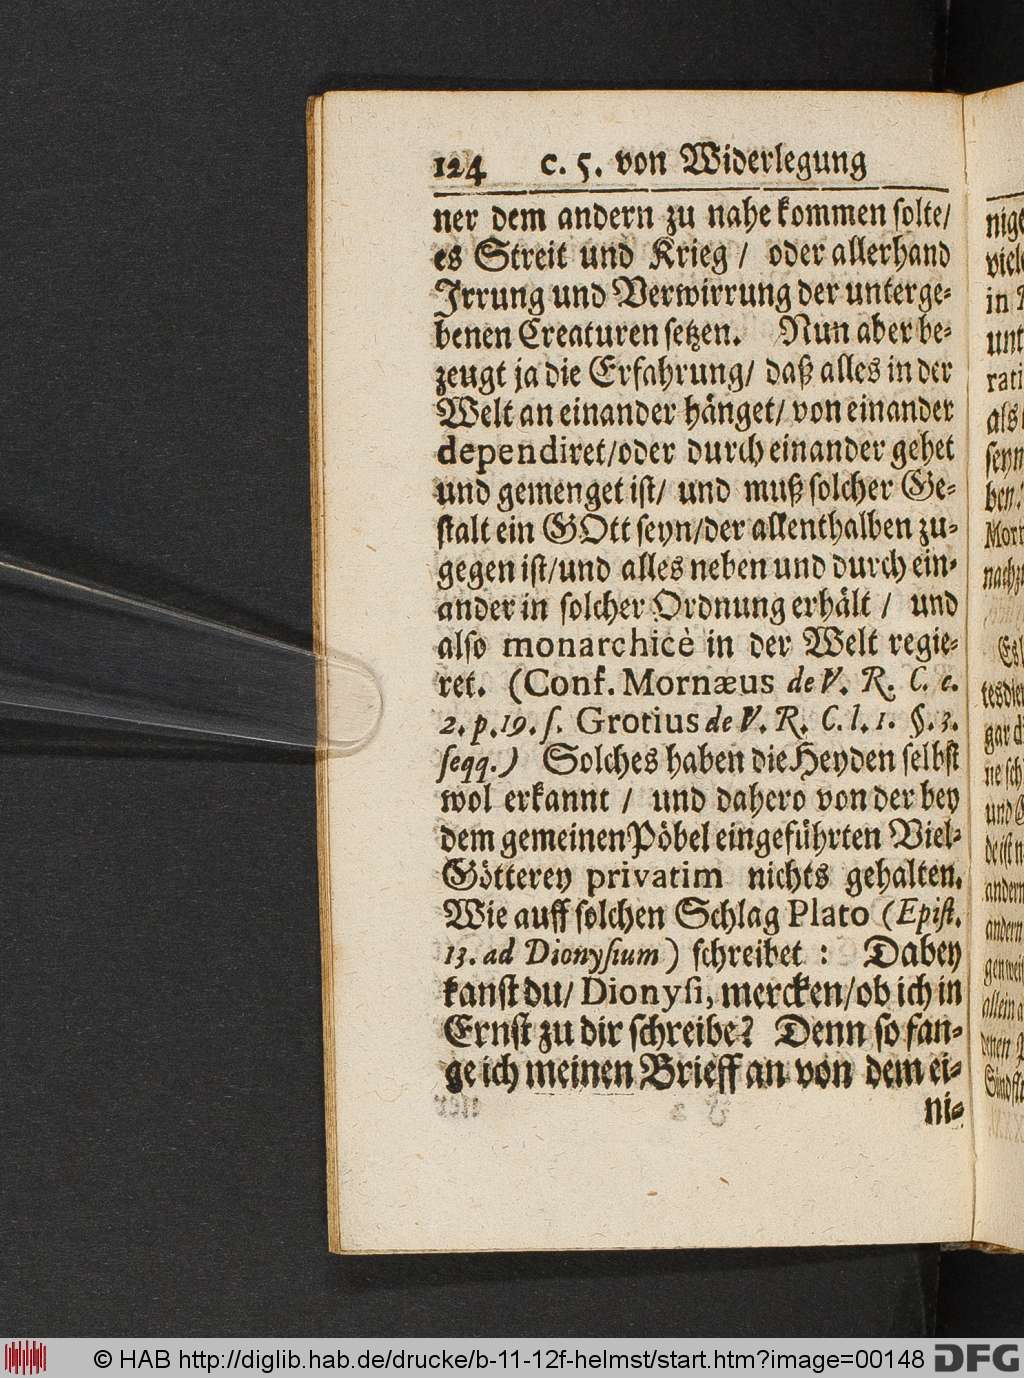 124 c. 5. von Widerlegung
ner dem andern zu nahe kommen solte/
es Streit und Krieg / oder allerhand
Irrung und Verwirrung der unterge-
benen Creaturen setzen. Nun aber be-
zeugt ja die Erfahrung/ daß alles in der
Welt an einander hänget/ von einander
dependiret/oder durch einander gehet
und gemenget ist/ und muß solcher Ge-
stalt ein GOtt seyn/der allenthalben zu-
gegen ist/und alles neben und durch ein-
ander in solcher Ordnung erhält / und
also monarchicè in der Welt regie-
ret. (Conf. Mornæus de V. R. C. c.
2. p. 19. s. Grotius de V. R. C. l. 1. §. 3.
seqq.) Solches haben die Heyden selbst
wol erkannt / und dahero von der bey
dem gemeinen Pöbel eingeführten Viel-
Götterey privatim nichts gehalten.
Wie auff solchen Schlag Plato (Epist.
13. ad Dionysium) schreibet : Dabey
kanst du/ Dionysi, mercken/ob ich in
Ernst zu dir schreibe? Denn so fan-
ge ich meinen Brieff an von dem ei-
ni-
© HAB http://diglib.hab.de/drucke/b-11-12f-helmst/start.htm?image=00148 DFG